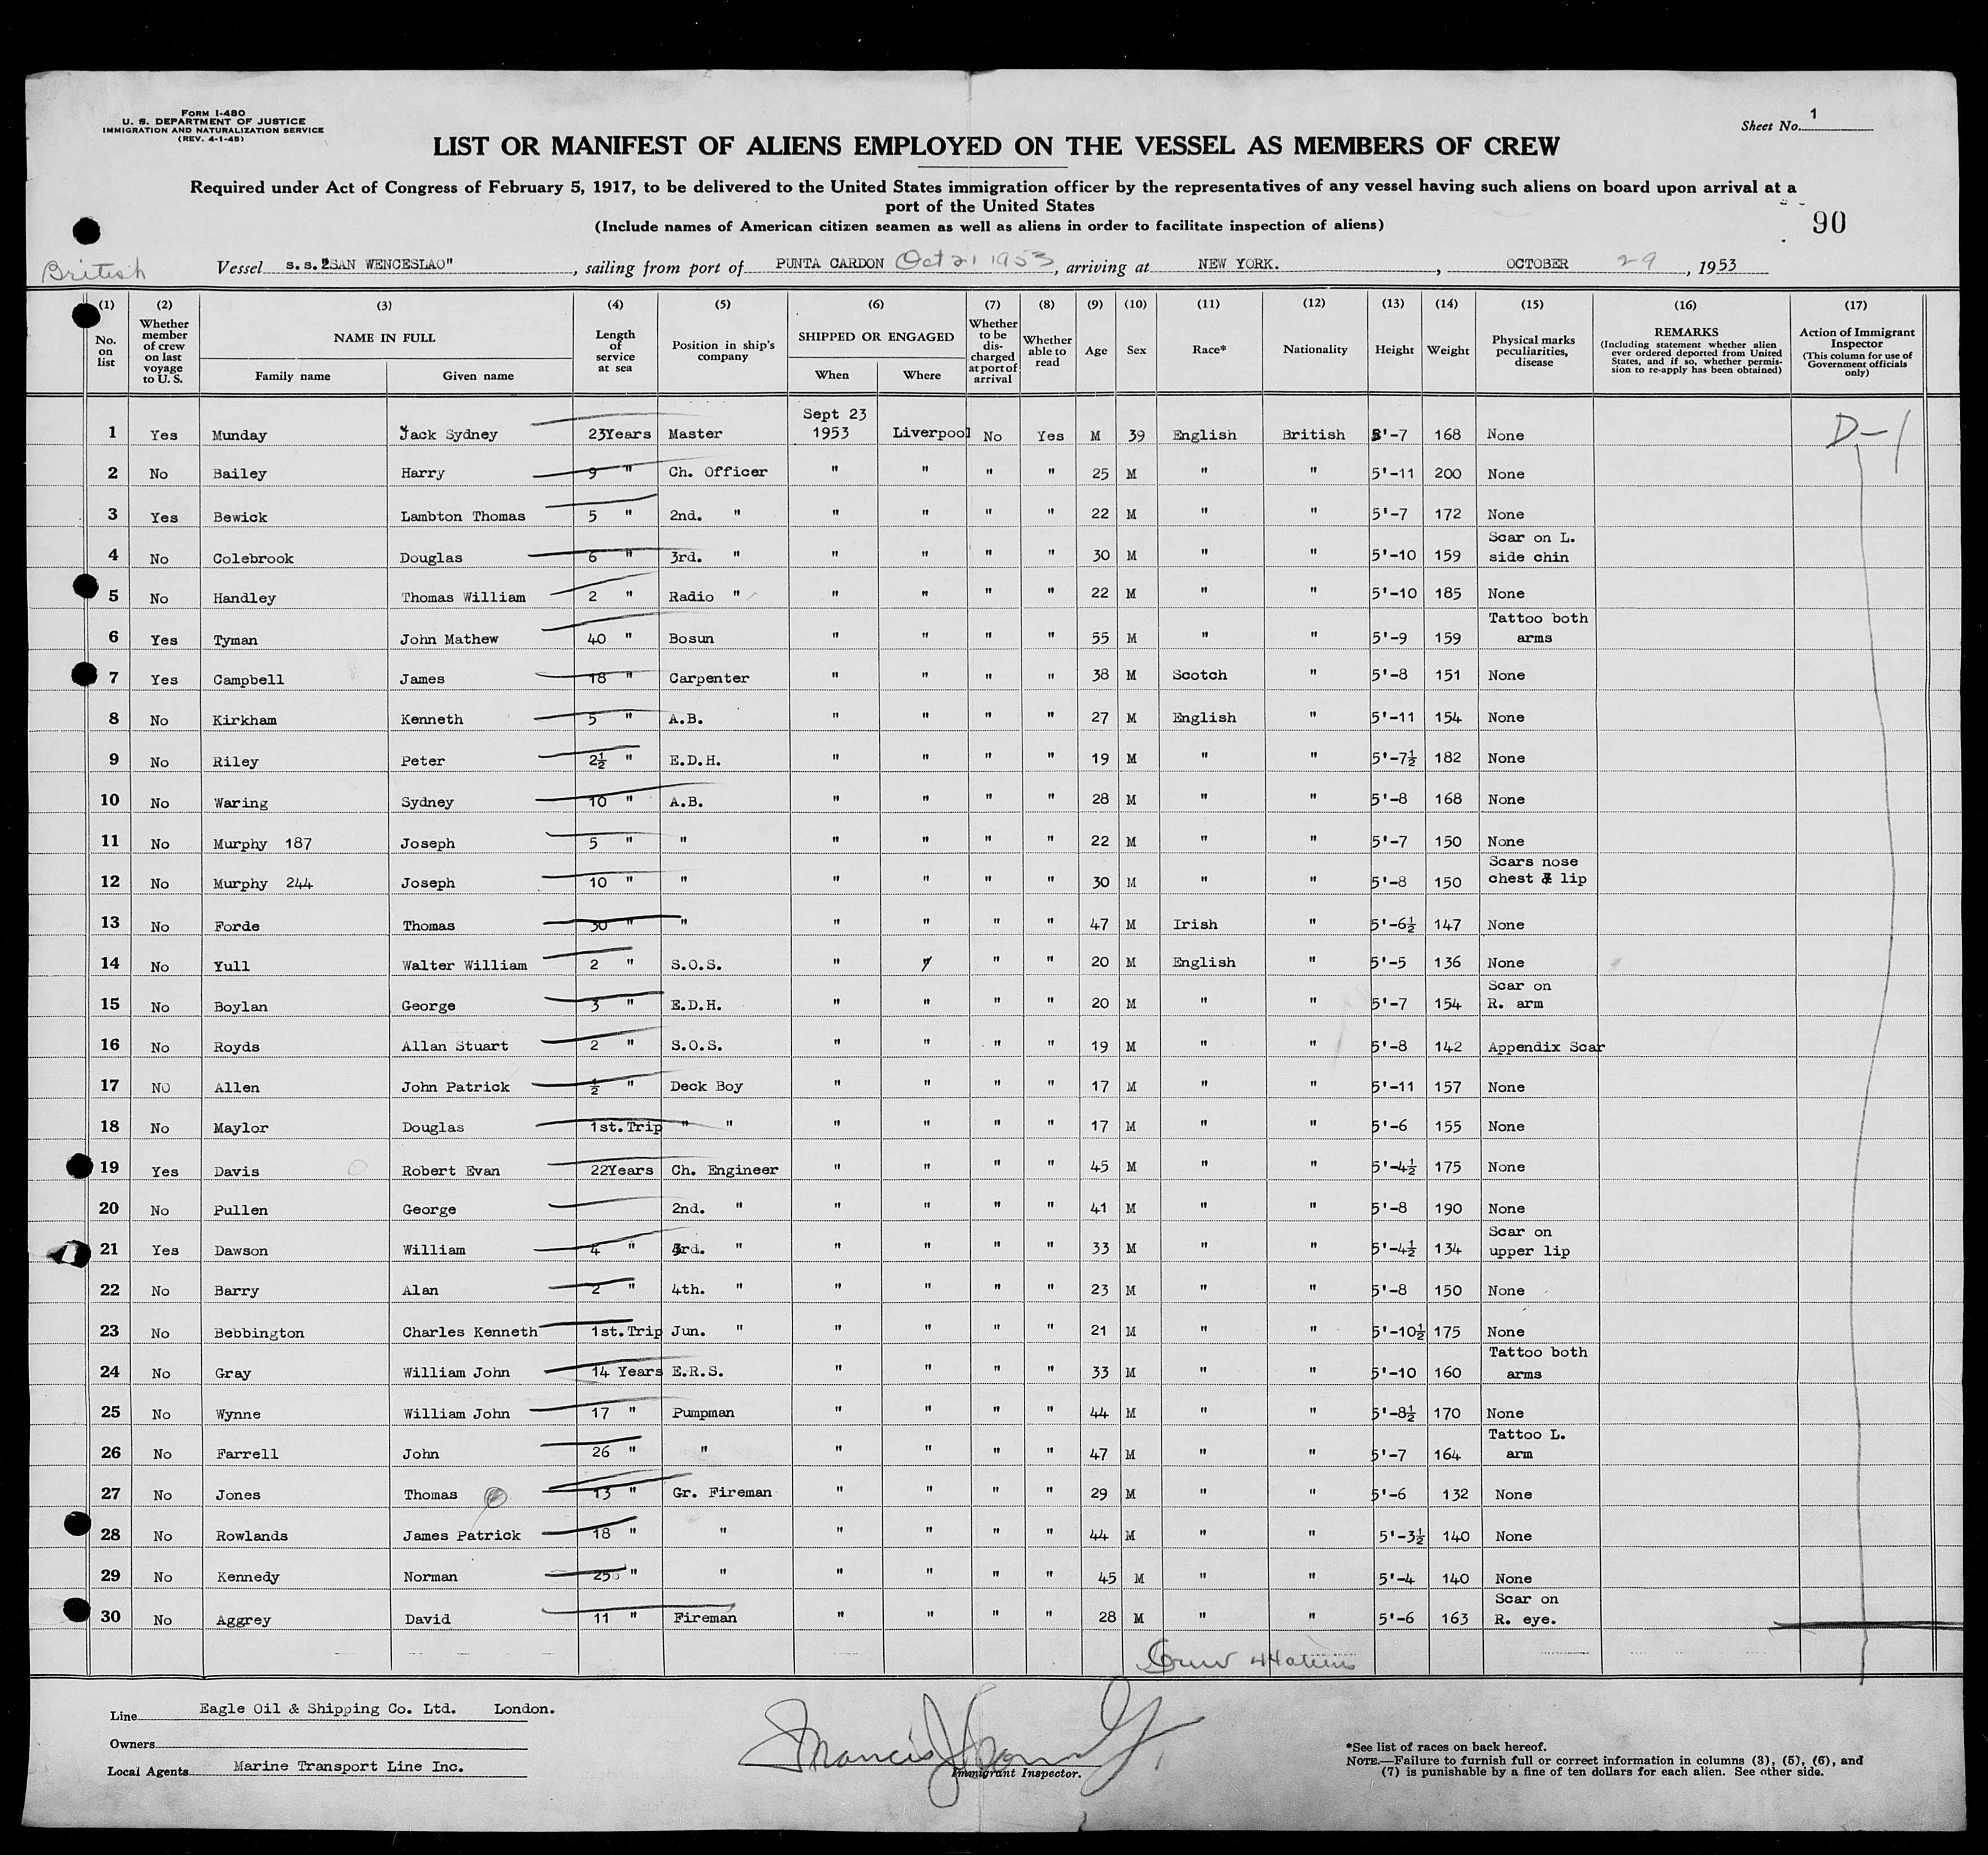 FORM I-480
U. S. DEPARTMENT OF JUSTICE
IMMIGRATION AND NATURALIZATION SERVICE
(REV. 4-1-45)
Sheet No. 1
LIST OR MANIFEST OF ALIENS EMPLOYED ON THE VESSEL AS MEMBERS OF CREW
Required under Act of Congress of February 5, 1917, to be delivered to the United States immigration officer by the representatives of any vessel having such aliens on board upon arrival at a
port of the United States
(Include names of American citizen seamen as well as aliens in order to facilitate inspection of aliens)
90
British Vessel s.s."SAN WENCESLAO", sailing from port of PUNTA CARDON Oct 21 1953, arriving at NEW YORK., OCTOBER 29, 1953
(1) (2) (3) (4) (5) (6) (7) (8) (9) (10) (11) (12) (13) (14) (15) (16) (17)
No. on list
Whether member of crew on last voyage to U. S.
NAME IN FULL
Family name Given name
Length of service at sea
Position in ship's company
SHIPPED OR ENGAGED
When Where
Whether to be discharged at port of arrival
Whether able to read
Age Sex Race* Nationality Height Weight
Physical marks peculiarities, disease
REMARKS
(Including statement whether alien ever ordered deported from United States, and if so, whether permission to re-apply has been obtained)
Action of Immigrant Inspector
(This column for use of Government officials only)
1 Yes Munday Jack Sydney 23Years Master Sept 23 1953 Liverpool No Yes M 39 English British 5'-7 168 None D-1
2 No Bailey Harry 9 " Ch. Officer " " " " 25 M " " 5'-11 200 None
3 Yes Bewick Lambton Thomas 5 " 2nd. " " " " " 22 M " " 5'-7 172 None
4 No Colebrook Douglas 6 " 3rd. " " " " " 30 M " " 5'-10 159 Scar on L. side chin
5 No Handley Thomas William 2 " Radio " " " " " 22 M " " 5'-10 185 None
6 Yes Tyman John Mathew 40 " Bosun " " " " 55 M " " 5'-9 159 Tattoo both arms
7 Yes Campbell James 18 " Carpenter " " " " 38 M Scotch " 5'-8 151 None
8 No Kirkham Kenneth 5 " A.B. " " " " 27 M English " 5'-11 154 None
9 No Riley Peter 2½ " E.D.H. " " " " 19 M " " 5'-7½ 182 None
10 No Waring Sydney 10 " A.B. " " " " 28 M " " 5'-8 168 None
11 No Murphy 187 Joseph 5 " " " " " " 22 M " " 5'-7 150 None
12 No Murphy 244 Joseph 10 " " " " " " 30 M " " 5'-8 150 Scars nose chest & lip
13 No Forde Thomas 30 " " " " " " 47 M Irish " 5'-6½ 147 None
14 No Yull Walter William 2 " S.O.S. " " " " 20 M English " 5'-5 136 None
15 No Boylan George 3 " E.D.H. " " " " 20 M " " 5'-7 154 Scar on R. arm
16 No Royds Allan Stuart 2 " S.O.S. " " " " 19 M " " 5'-8 142 Appendix Scar
17 NO Allen John Patrick ½ " Deck Boy " " " " 17 M " " 5'-11 157 None
18 No Maylor Douglas 1st.Trip " " " " " " 17 M " " 5'-6 155 None
19 Yes Davis Robert Evan 22Years Ch. Engineer " " " " 45 M " " 5'-4½ 175 None
20 No Pullen George 2nd. " " " " " 41 M " " 5'-8 190 None
21 Yes Dawson William 4 " 3rd. " " " " " 33 M " " 5'-4½ 134 Scar on upper lip
22 No Barry Alan 2 " 4th. " " " " " 23 M " " 5'-8 150 None
23 No Bebbington Charles Kenneth 1st.Trip Jun. " " " " " 21 M " " 5'-10½ 175 None
24 No Gray William John 14 Years E.R.S. " " " " 33 M " " 5'-10 160 Tattoo both arms
25 No Wynne William John 17 " Pumpman " " " " 44 M " " 5'-8½ 170 None
26 No Farrell John 26 " " " " " " 47 M " " 5'-7 164 Tattoo L. arm
27 No Jones Thomas 13 " Gr. Fireman " " " " 29 M " " 5'-6 132 None
28 No Rowlands James Patrick 18 " " " " " " 44 M " " 5'-3½ 140 None
29 No Kennedy Norman 25 " " " " " " 45 M " " 5'-4 140 None
30 No Aggrey David 11 " Fireman " " " " 28 M " " 5'-6 163 Scar on R. eye.
Crew 44 aliens
Line Eagle Oil & Shipping Co. Ltd. London.
Owners
Local Agents Marine Transport Line Inc.
Francis J.
Immigrant Inspector.
*See list of races on back hereof.
NOTE.—Failure to furnish full or correct information in columns (3), (5), (6), and
(7) is punishable by a fine of ten dollars for each alien. See other side.